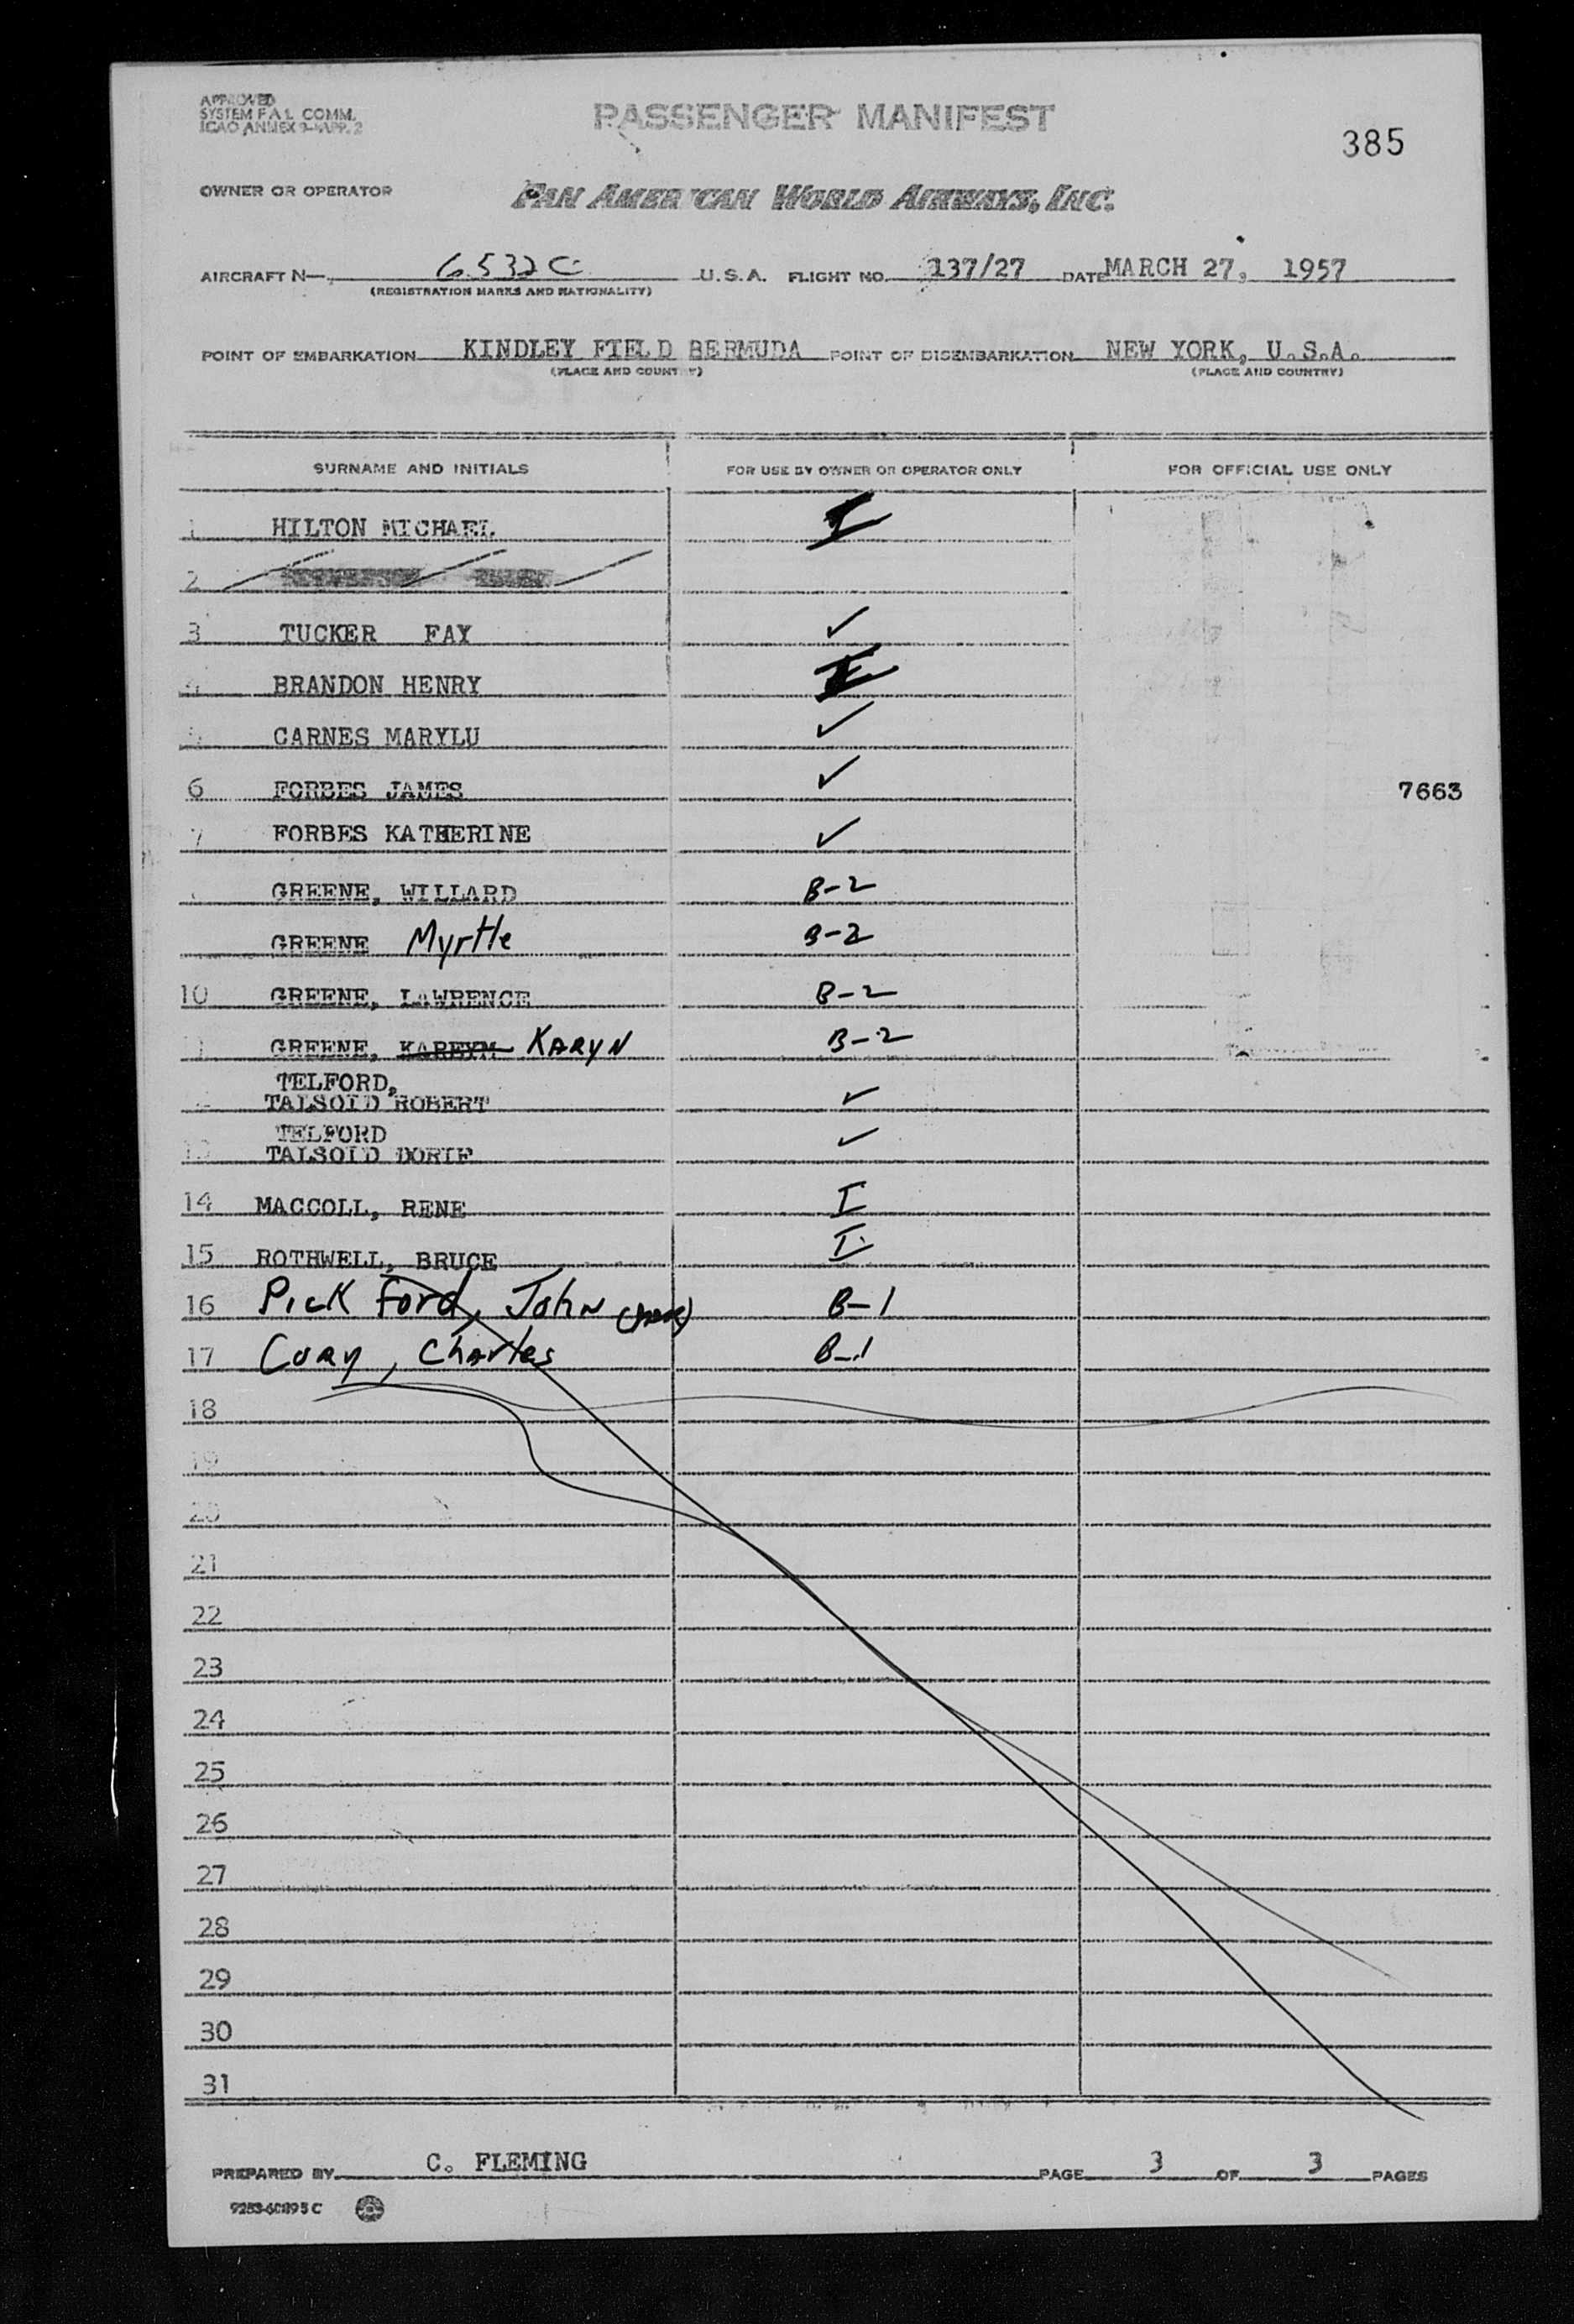 APPROVED
SYSTEM F.A.L. COMM.
ICAO ANNEX 9-APP. 2
PASSENGER MANIFEST
385
OWNER OR OPERATOR PAN AMERICAN WORLD AIRWAYS, INC.
AIRCRAFT N— 6532C U.S.A. FLIGHT NO. 137/27 DATE MARCH 27, 1957
(REGISTRATION MARKS AND NATIONALITY)
POINT OF EMBARKATION KINDLEY FIELD BERMUDA POINT OF DISEMBARKATION NEW YORK, U.S.A.
(PLACE AND COUNTRY) (PLACE AND COUNTRY)
SURNAME AND INITIALS FOR USE BY OWNER OR OPERATOR ONLY FOR OFFICIAL USE ONLY
1 HILTON MICHAEL I
2
3 TUCKER FAY ✓
4 BRANDON HENRY I
5 CARNES MARYLU ✓
6 FORBES JAMES ✓ 7663
7 FORBES KATHERINE ✓
GREENE, WILLARD B-2
GREENE Myrtle B-2
10 GREENE, LAWRENCE B-2
11 GREENE, KAREYM KARYN B-2
TELFORD,
TALSOID ROBERT ✓
TELFORD
13 TALSOID DORIE ✓
14 MACCOLL, RENE I
15 ROTHWELL, BRUCE I
16 Pick ford, John B-1
17 Cury, Charles B-1
18
19
20
21
22
23
24
25
26
27
28
29
30
31
PREPARED BY C. FLEMING PAGE 3 OF 3 PAGES